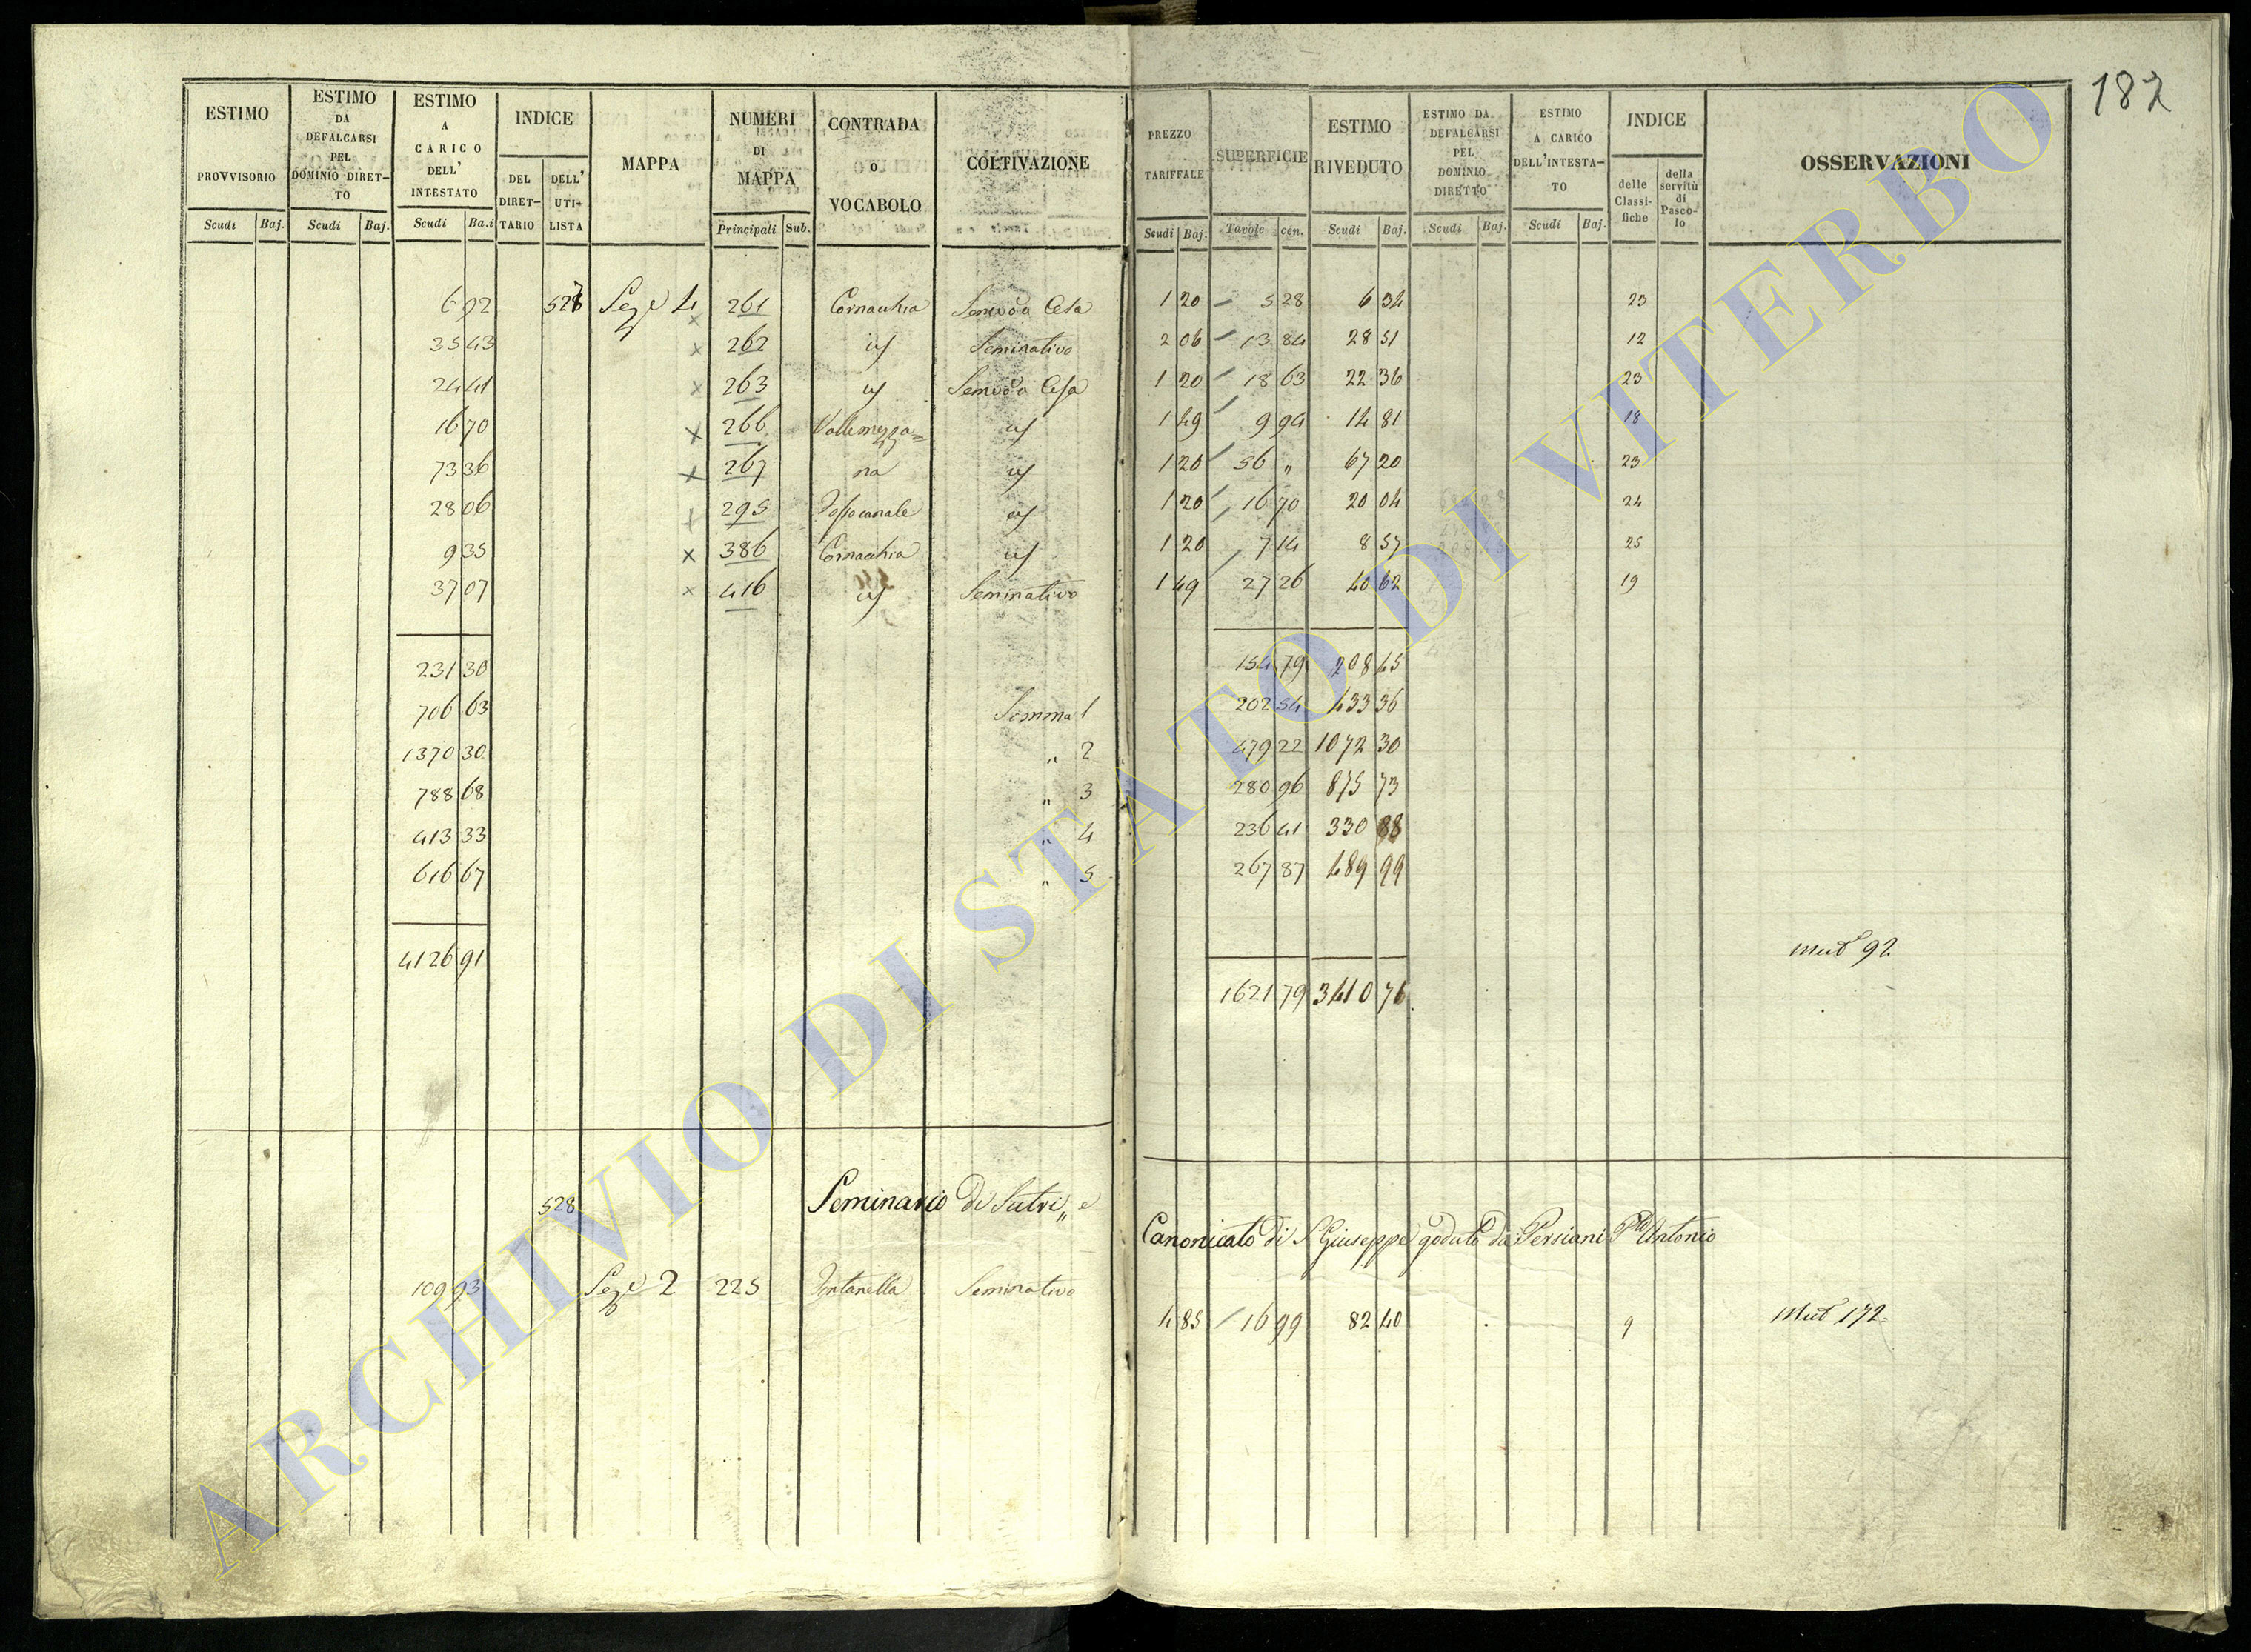 182
ESTIMO PROVVISORIO Scudi Baj.
ESTIMO DA DEFALCARSI PEL DOMINIO DIRET-TO Scudi Baj.
ESTIMO A CARICO DELL' INTESTATO Scudi Ba.i
INDICE DEL DIRET-TARIO DELL' UTI-LISTA
MAPPA
NUMERI DI MAPPA Principali Sub.
CONTRADA o VOCABOLO
COLTIVAZIONE
PREZZO TARIFFALE Scudi Baj.
SUPERFICIE Tavole cen.
ESTIMO RIVEDUTO Scudi Baj.
ESTIMO DA DEFALCARSI PEL DOMINIO DIRETTO Scudi Baj.
ESTIMO A CARICO DELL'INTESTA-TO Scudi Baj.
INDICE delle Classi-fiche della servitù di Pasco-lo
OSSERVAZIONI
6 92 527 Sez.e 4 261 Cornacchia Cesa 1 20 5 28 6 34 23
35 43 × 262 id Seminativo 2 06 13 84 28 51 12
24 41 × 263 id Cesa 1 20 18 63 22 36 23
16 70 × 266 Vallemezza= id 1 49 9 94 14 81 18
73 36 × 267 na id 1 20 56 " 67 20 23
28 06 × 295 Fossocanale id 1 20 16 70 20 04 24
9 35 × 386 Cornacchia id 1 20 7 14 8 57 25
37 07 × 416 id Seminativo 1 49 27 26 40 62 19
231 30 154 79 208 45
706 63 Somma 1 202 54 433 36
1370 30 " 2 479 22 1072 30
788 68 " 3 280 96 875 73
413 33 " 4 236 41 330 88
616 67 " 5 267 87 489 99
4126 91 1621 79 3410 76 Mut 92
528 Seminario di Sutri, e
Canonicato di S Giuseppe goduto da Persiani Antonio
109 93 Sez.e 2 225 Fontanella Seminativo 4 85 16 99 82 40 9 Mut 172
ARCHIVIO DI STATO DI VITERBO